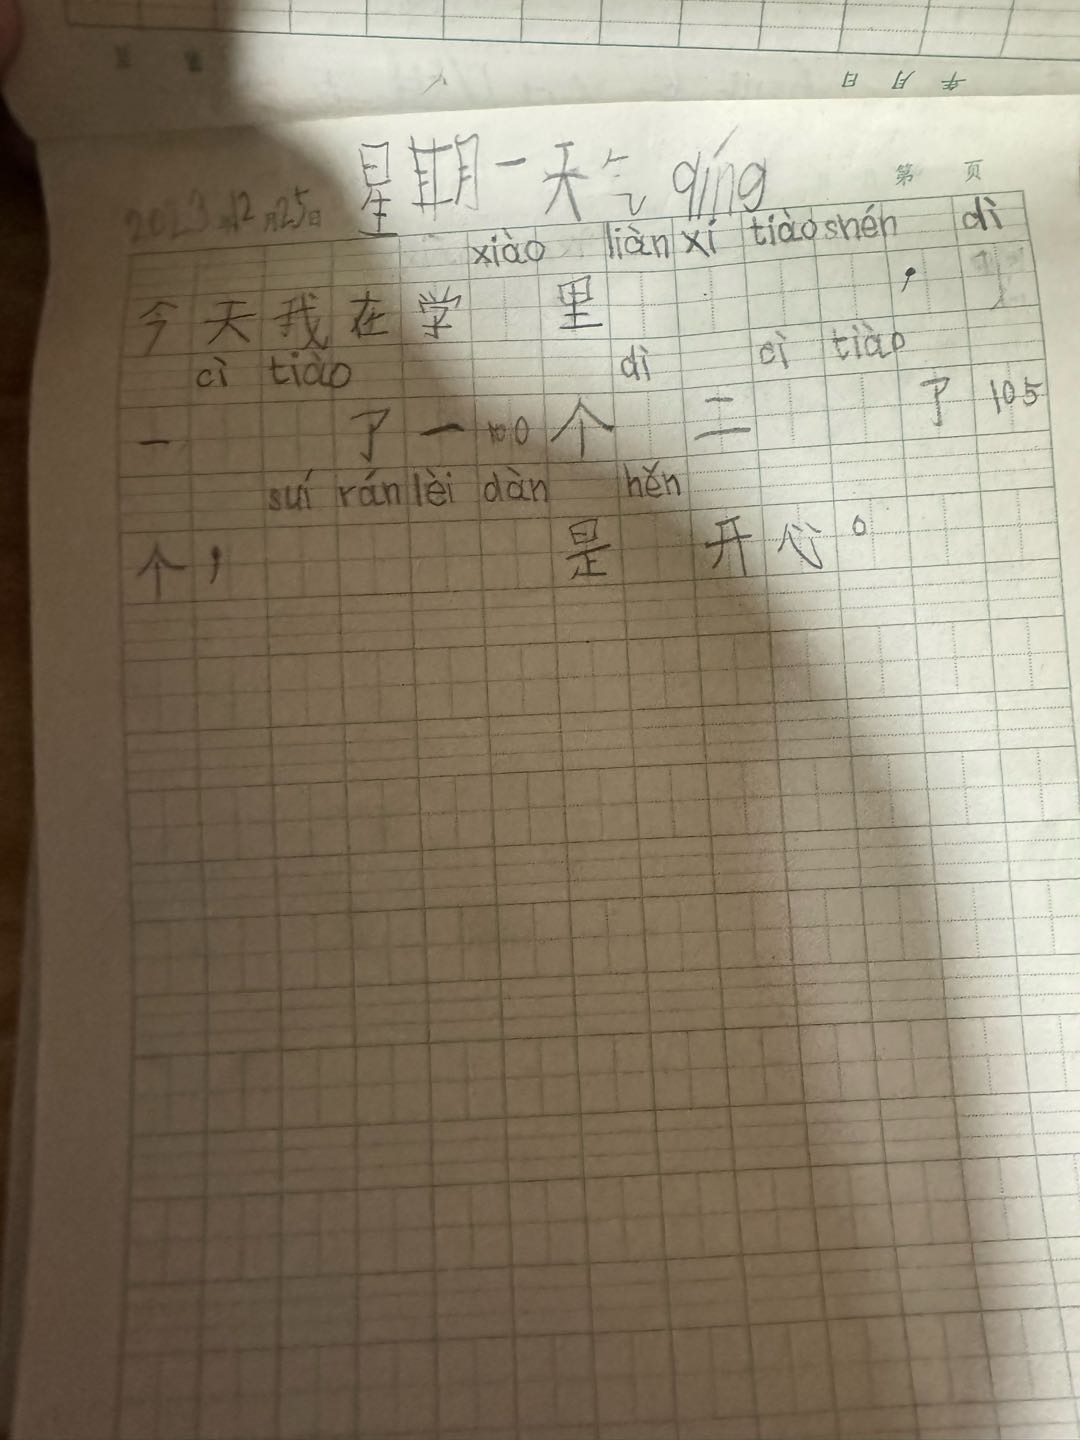 年 月 日
第 页
星期一天气qíng
2023年12月25日
xiào liàn xí tiào shén dì
今天我在学 里 ，
cì tiào dì cì tiào
一 了一100个 二 了105
suí rán lèi dàn hěn
个， 是 开心。